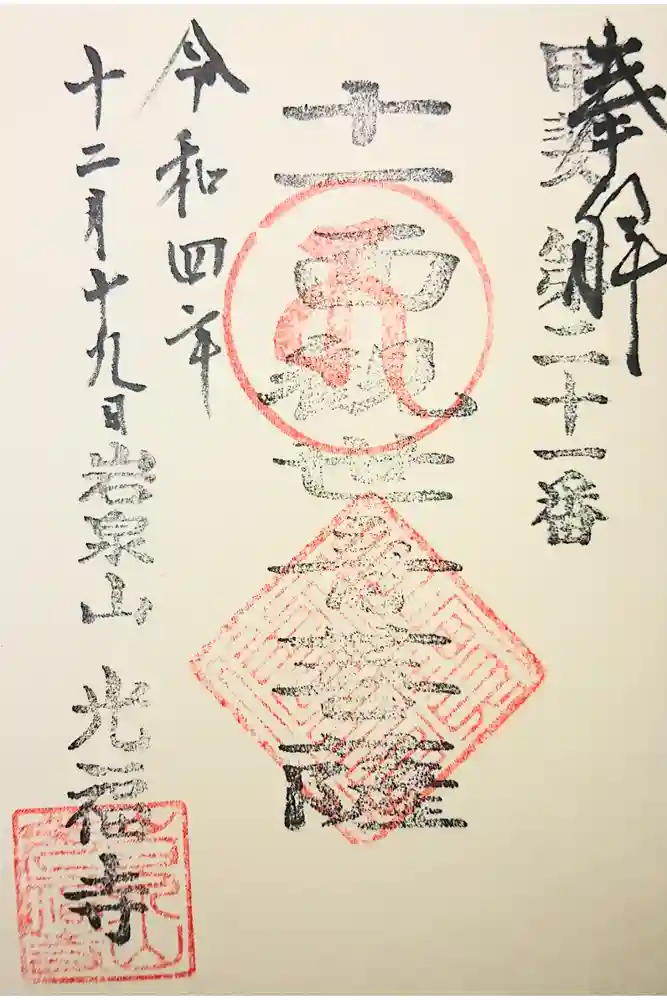 奉拝
甲斐 第二十一番
十一面観世音菩薩
令和四年
十二月十九日
岩泉山 光福寺